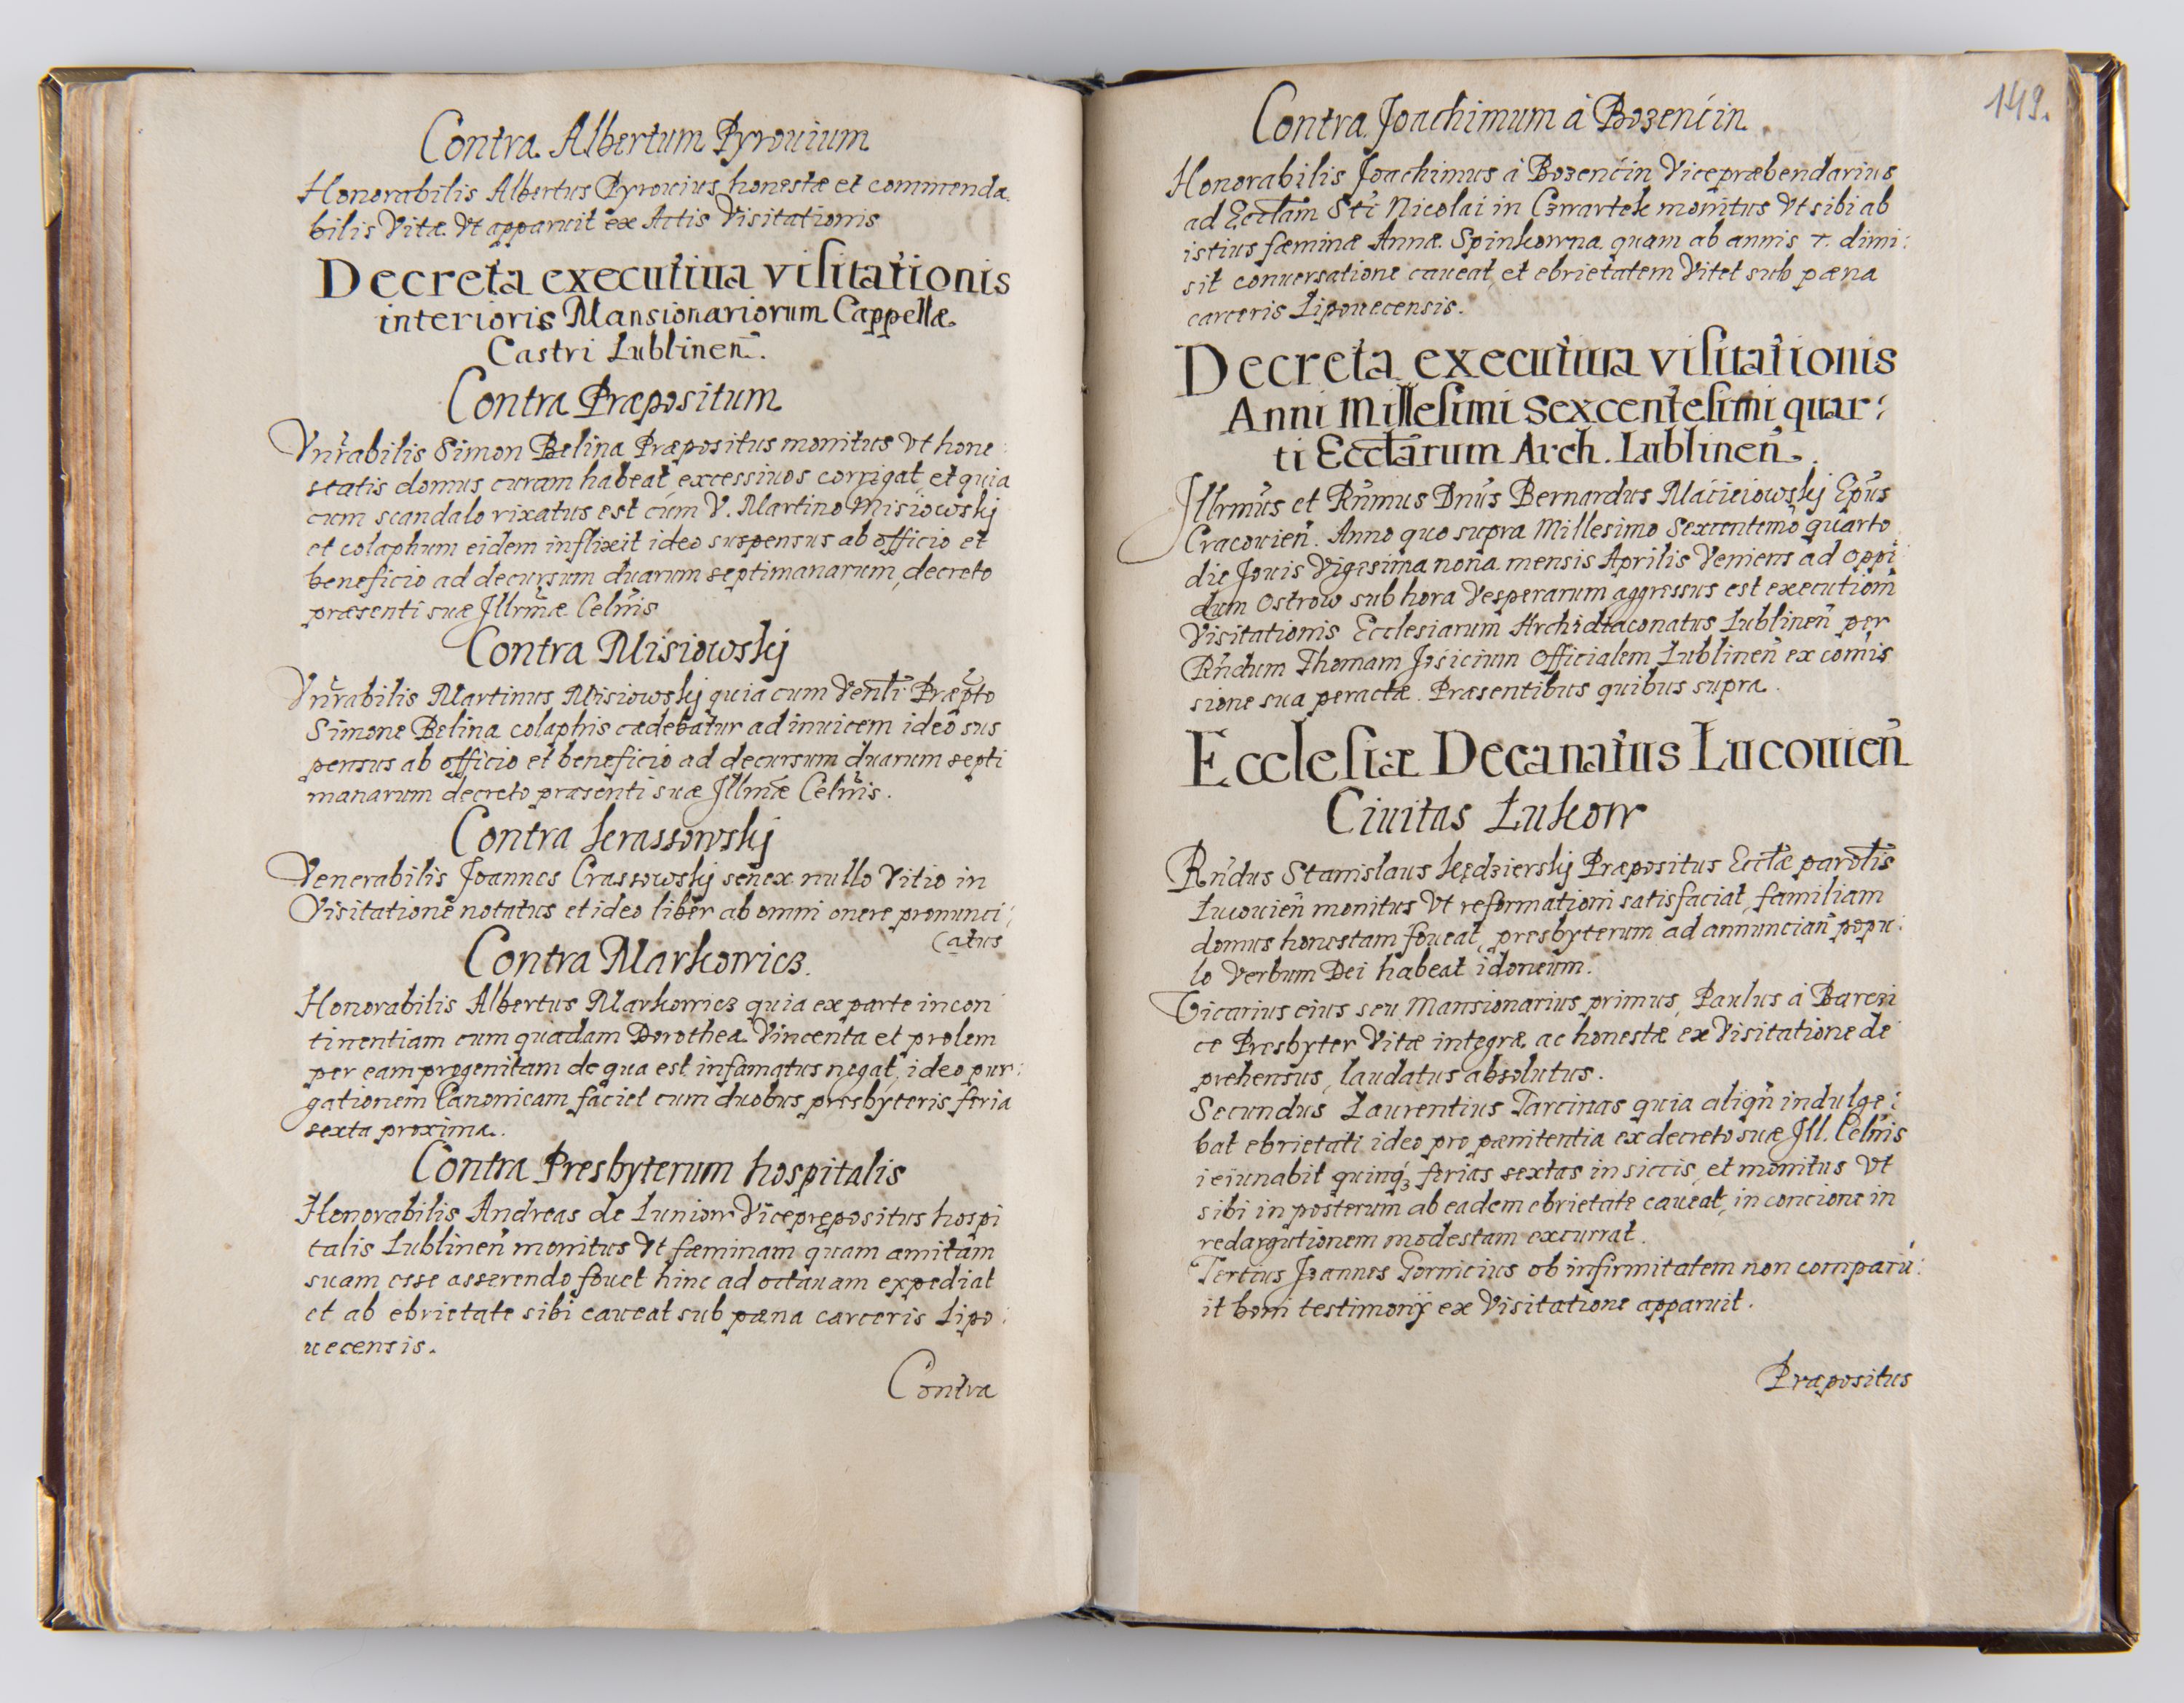 Contra Albertum Pyrouium
Honorabilis Albertus Pyrouius honestæ et commenda
bilis Vitæ Vt apparuit ex Actis Visitationis
Decreta executiua visitationis
interioris Mansionariorum Cappellæ
Castri Lublinen̄.
Contra Præpositum
Vnr̄abilis Simon Belina Præpositus monitus Vt hone
statis domus curam habeat, excessiuos corrigat, et quia
cum scandalo rixatus est cum V. Martino Misiowskj
et colaphum eidem inflixit ideo suspensus ab officio et
beneficio ad decursum duarum septimanarum, decreto
præsenti suæ Illrmæ Celnis
Contra Misiowskj
Vnr̄abilis Martinus Misiowskj quia cum Venli Præpto
Simone Belina colaphis cædebatur ad inuicem ideo sus
pensus ab officio et beneficio ad decursum duarum septi
manarum decreto præsenti suæ Illmæ Celnis.
Contra krassowskj
Venerabilis Joannes Crassowskj senex nullo Vitio in
Visitatione notatus et ideo liber ab omni onere pronunci:
(atus
Contra Markowicz.
Honorabilis Albertus Markowicz quia ex parte incon
tinentiam cum quadam Dorothea Vincenta et prolem
per eam progenitam de qua est infamatus negat, ideo pur:
gationem Canonicam faciet cum duobus presbyteris feria
sexta proxima.
Contra Presbyterum hospitalis
Honorabilis Andreas de Luniow Viceprępositus hospi
talis Lublinen̄ monitus Vt fæminam quam amitam
suam esse asserendo fouet hinc ad octauam expediat
et ab ebrietate sibi caueat sub pæna carceris Lipo:
uecensis.
Contra
149.
Contra Joachimum à Bozencin
Honorabilis Joachimus à Bozencin Vicepræbendarius
ad Eccl̄am Sti Nicolai in Czwartek monitus Vt sibi ab
istius fæminæ Annæ Spinkowna quam ab annis 7. dimi:
sit conuersatione caueat, et ebrietatem Vitet sub pæna
carceris Lipouecensis.
Decreta executiua visitationis
Anni Millesimi sexcentesimi quar:
ti Eccl̄arum Arch. Lublinen̄.
Illrmus et Rn̄mus Dnus Bernardus Macieiowskj Epus
Cracouien̄. Anno quo supra Millesimo Sexcentemo quarto
die Jouis Vigesima nona mensis Aprilis Veniens ad oppi
dum Ostrow sub hora Vesperarum aggressus est executiom̄
Visitationis Ecclesiarum Archidiaconatus Lublinen̄ per
Rn̄dum Thomam Josicium Officialem Lublinen̄ ex comis
sione sua peractæ. Præsentibus quibus supra.
Ecclesiæ Decanatus Lucouien̄
Ciuitas Lukow
Rn̄dus Stanislaus kędzierskj Præpositus Eccl̄æ parol̄is
Lucouien̄ monitus Vt reformationi satisfaciat, familiam
domus honestam foueat, presbyterum ad annuncian̄ popu:
lo Verbum Dei habeat idoneum.
Vicarius eius seu Mansionarius primus, Paulus à Barczi
ce Presbyter Vitæ integræ ac honestæ ex Visitatione de
prehensus, laudatus absolutus.
Secundus Laurentius Tarcinas quia aliqn̄ indulge:
bat ebrietati ideo pro pænitentia ex decreto suæ Ill. Celnis
ieiunabit quinqȝ ferias sextas in siccis, et monitus Vt
sibi in posterum ab eadem ebrietate caueat, in concione in
redargutionem modestam excurrat.
Tertius Joannes Gornicius ob infirmitatem non comparu:
it boni testimonij ex Visitatione apparuit.
Præpositus